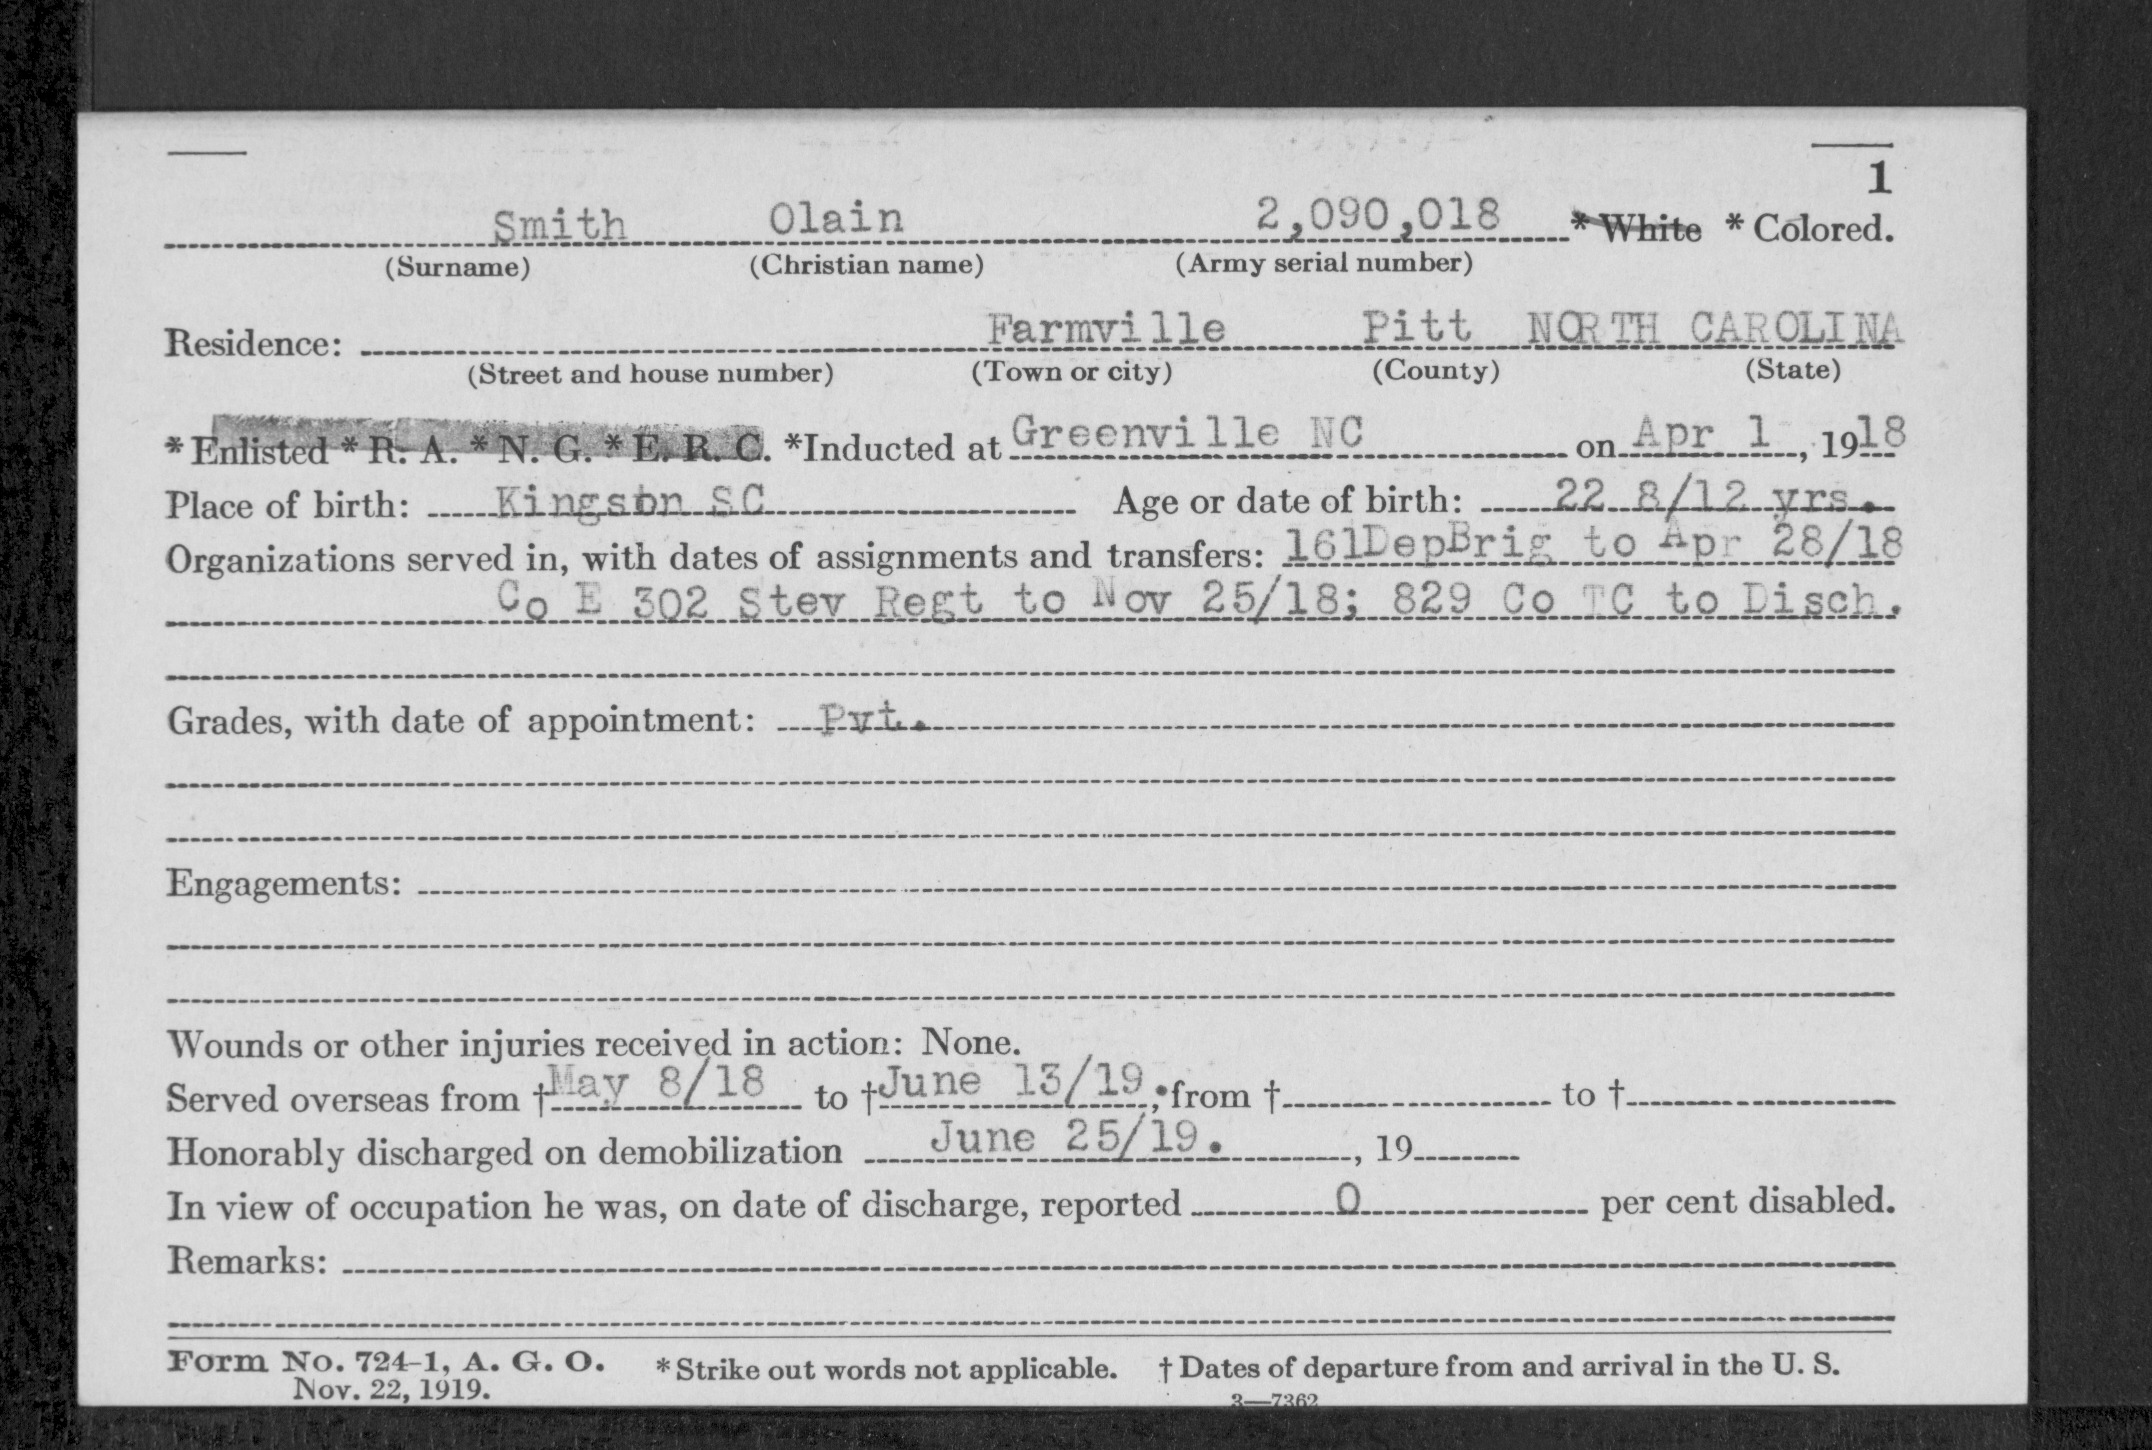 1
Smith Olain 2,090,018 * White * Colored.
(Surname) (Christian name) (Army serial number)
Residence: Farmville Pitt NORTH CAROLINA
(Street and house number) (Town or city) (County) (State)
* Enlisted * R. A. * N. G. * E. R. C. *Inducted at Greenville NC on Apr 1, 1918
Place of birth: Kingston SC Age or date of birth: 22 8/12 yrs.
Organizations served in, with dates of assignments and transfers: 161DepBrig to Apr 28/18
Co E 302 Stev Regt to Nov 25/18; 829 Co TC to Disch.
Grades, with date of appointment: Pvt.
Engagements:
Wounds or other injuries received in action: None.
Served overseas from †May 8/18 to †June 13/19.; from † to †
Honorably discharged on demobilization June 25/19., 19
In view of occupation he was, on date of discharge, reported 0 per cent disabled.
Remarks:
Form No. 724-1, A. G. O. * Strike out words not applicable. † Dates of departure from and arrival in the U. S.
Nov. 22, 1919.
3—7362